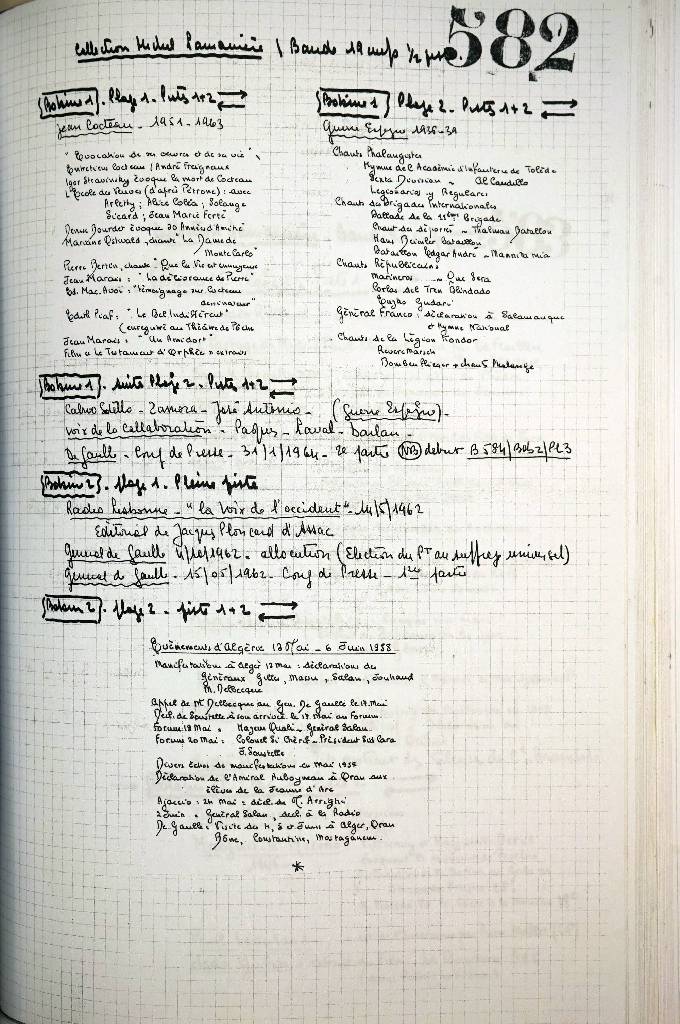 582
Collection Michel / Bande 19 cm/s 1/2 piste.
Bobine 1. Plage 1. Pistes 1+2
Jean Cocteau - 1951 - 1963
"Evocation de son oeuvre et de sa vie"
Entretien Cocteau / André Fraigneau
Igor Stravinsky évoque la mort de Cocteau
L'Ecole des Veuves (d'après Pétrone) : avec
Arletty ; Alice Cocéa ; Solange
Sicard ; Jean Marie Ferté
Denise Bourdet évoque 30 Années Amitié
Marianne Oswald, chante "La Dame de
Monte Carlo"
Pierre Bertin, chante "Que la Vie est ennuyeuse
Jean Marais : "La délivrance de Pierre"
Ed. Mac. Avoy : "témoignage sur Cocteau
dessinateur"
Edith Piaf : "Le Bel Indifférent"
(enregistré au Théâtre de Poche
Jean Marais : "Un Ami dort"
Film "Le Testament d'Orphée" extraits
Bobine 1 Plage 2 - Pistes 1+2
Guerre Espagne 1936-39
Chants Phalangistes
Hymne de l'Académie d'Infanterie de Tolède
Sexta Division - Al Caudillo
Legionarios y Regulares
Chants des Brigades Internationales
Ballade de la 11ème Brigade
Chant des déportés - Thalman Batallon
Hans Beimler Batallon
Bataillon Edgar André - Mannita mia
Chants Républicains
Marineros - Que Sera
Coplas del Tren Blindado
Euzko Gudari
Général Franco : déclaration à Salamanque
et Hymne National
Chants de la Légion Kondor
Bomben Flieger + chant Phalange
Bobine 1. suite Plage 2 - Pistes 1+2
Calvo Sotello - Zamora - José Antonio - (Guerre Espagne) -
Voix de la Collaboration - Paquis - Laval - Darlan -
De Gaulle - Conf de Presse - 31/1/1964 - 2e partie (NB) debut B584/Bob2/PL3
Bobine 2. Plage 1. Pleine piste
Radio Lisbonne - "la voix de l'occident" - 14/5/1962
Editorial de Jacques Ploncard d'Assac
General de Gaulle 4/10/1962 - allocution (Election du Pt au suffrage universel)
General de Gaulle - 15/05/1962 - Conf de Presse - 1ere partie
Bobine 2. Plage 2 - piste 1+2
Evènements d'Algérie 13 Mai - 6 Juin 1958
Manifestations à Alger 13 mai : déclarations des
Généraux Gilles, Massu, Salan, Jouhaud
M. Delbecque
Appel de Mt Delbecque au Gen. De Gaulle le 17 Mai
Décl. de Soustelle à son arrivée le 17 Mai au Forum
Forum 19 Mai : - Général Salan
Forum 20 Mai : Colonel Si Chérif - Président Sid Cara
J. Soustelle
Divers échos de manifestations en Mai 1958
Déclaration de l'Amiral Auboyneau à Oran aux
élèves de la Jeanne d'Arc
Ajaccio : 24 Mai : décl. de M. Arrighi
2 Juin : Général Salan, décl. à la Radio
De Gaulle : Visite des 4, 5 et 6 Juin à Alger, Oran
Bône, Constantine, Mostaganem.
*